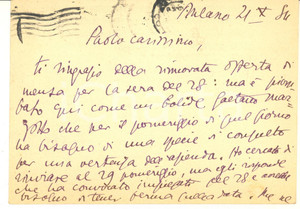 Milano 21 X 84
Paolo carissimo,
ti ringrazio della rinnovata offerta di
mensa per la sera del 28: ma è piom-
bato qui come un bolide Gaetano Mar-
zotto che per il pomeriggio di quel giorno
ha bisogno di una specie di consulto
per una vertenza dell'azienda. Ho cercato di
rinviare al 29 pomeriggio, ma egli risponde
che ha convocato
del 28 e
bisogno di tener ferma quella data. Me ne